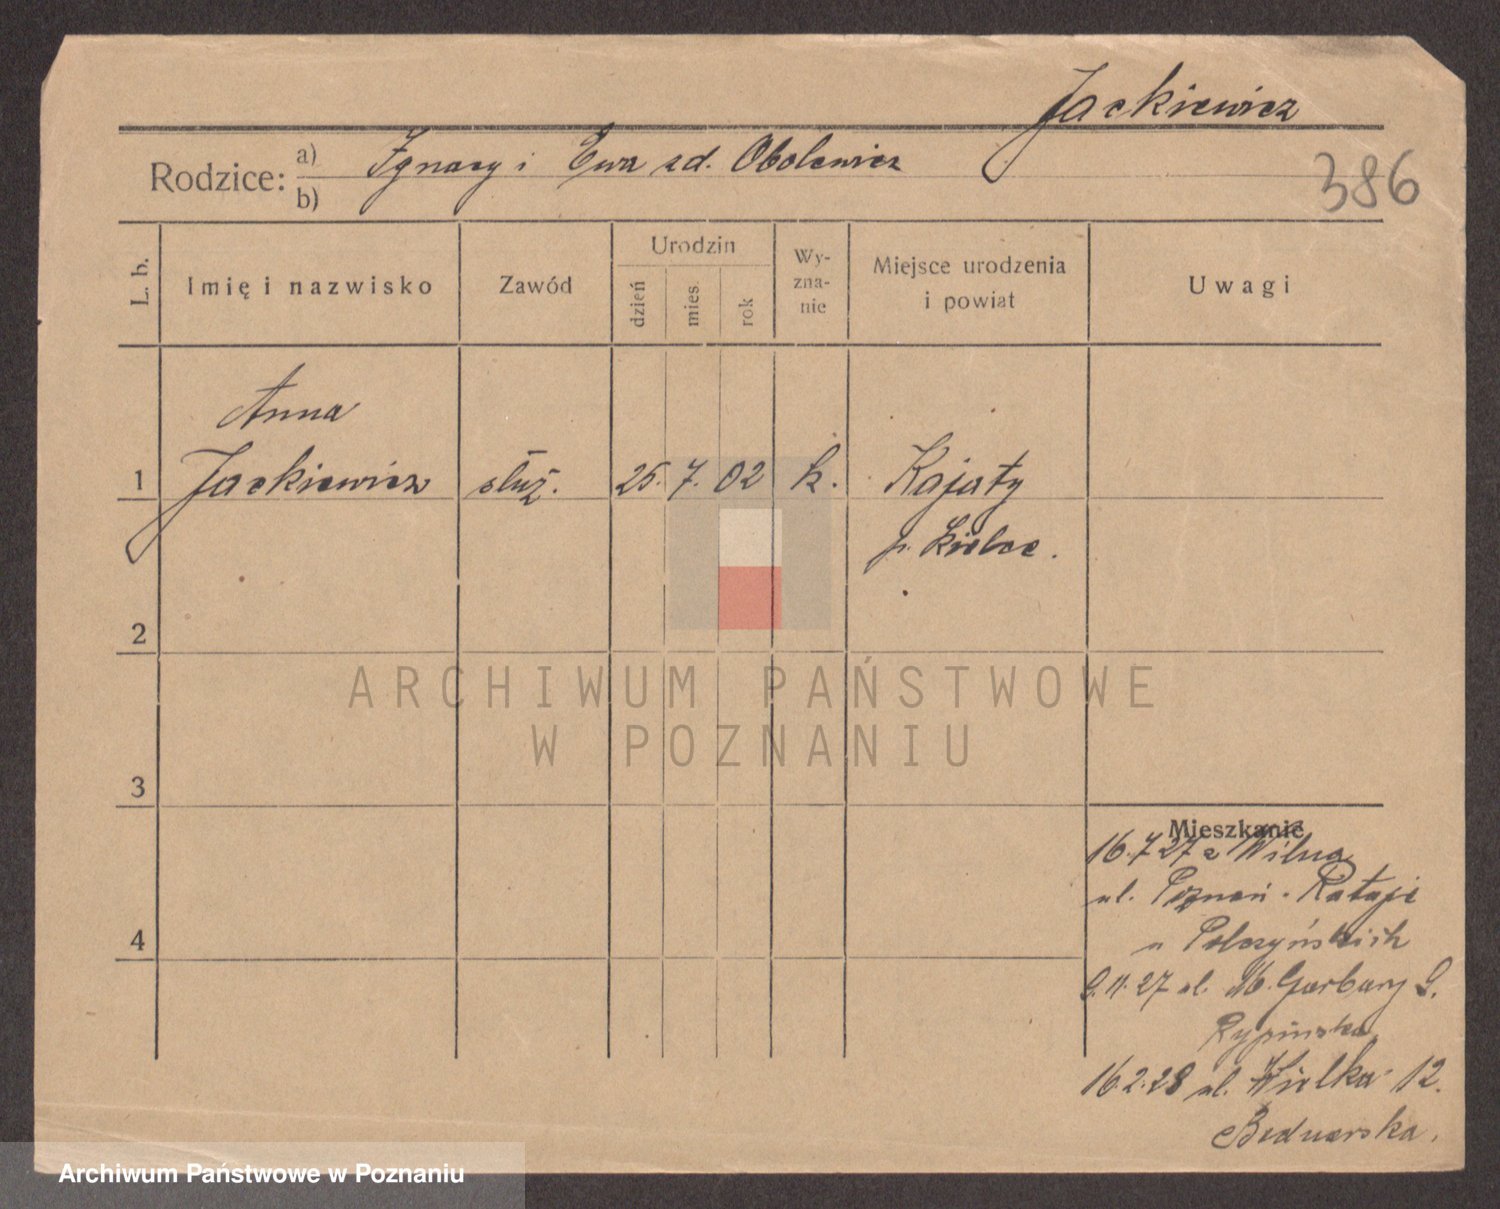 Jackiewicz
Rodzice: a) Ignacy i Ewa zd. Obolewicz
b)
386
L. b.
Imię i nazwisko
Zawód
Urodzin
dzień
mies.
rok
Wy-
zna-
nie
Miejsce urodzenia
i powiat
Uwagi
Anna
1 Jackiewicz służ. 25. 7. 02 k. Kajaty
p. Kielce.
2
ARCHIWUM PAŃSTWOWE
W POZNANIU
3
Mieszkanie
16.7.27 z Wilna
ul. Poznań - Rataje
u Polczyńskich
4
9.11.27 ul. W. Garbary 9.
Rypińska
16.2.28 ul. Wielka 12.
Bednarska.
Archiwum Państwowe w Poznaniu